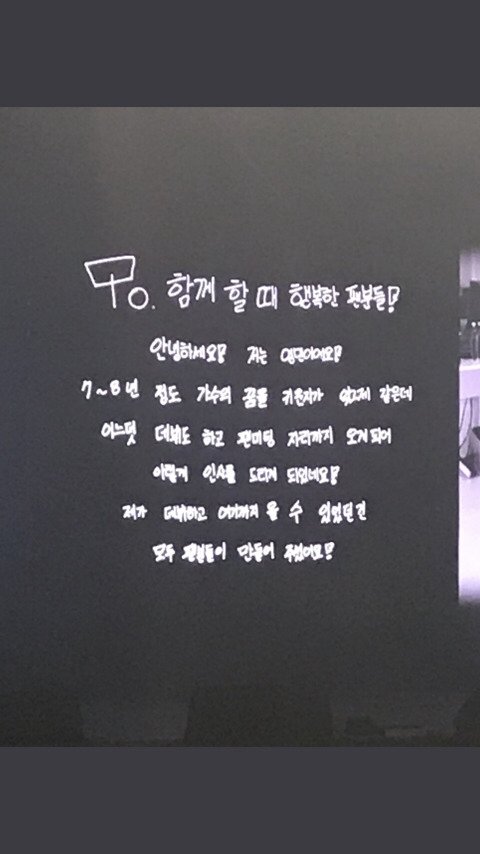 To. 함께 할 때 행복한 팬분들!
안녕하세요! 저는 영민이에요!
7~8년 정도 가수의 꿈을 키운지가 엊그제 같은데
어느덧 데뷔도 하고 팬미팅 자리까지 오게되어
이렇게 인사를 드리게 되었네요!
제가 데뷔하고 여기까지 올 수 있었던건
모두 팬분들이 만들어 주셨어요!